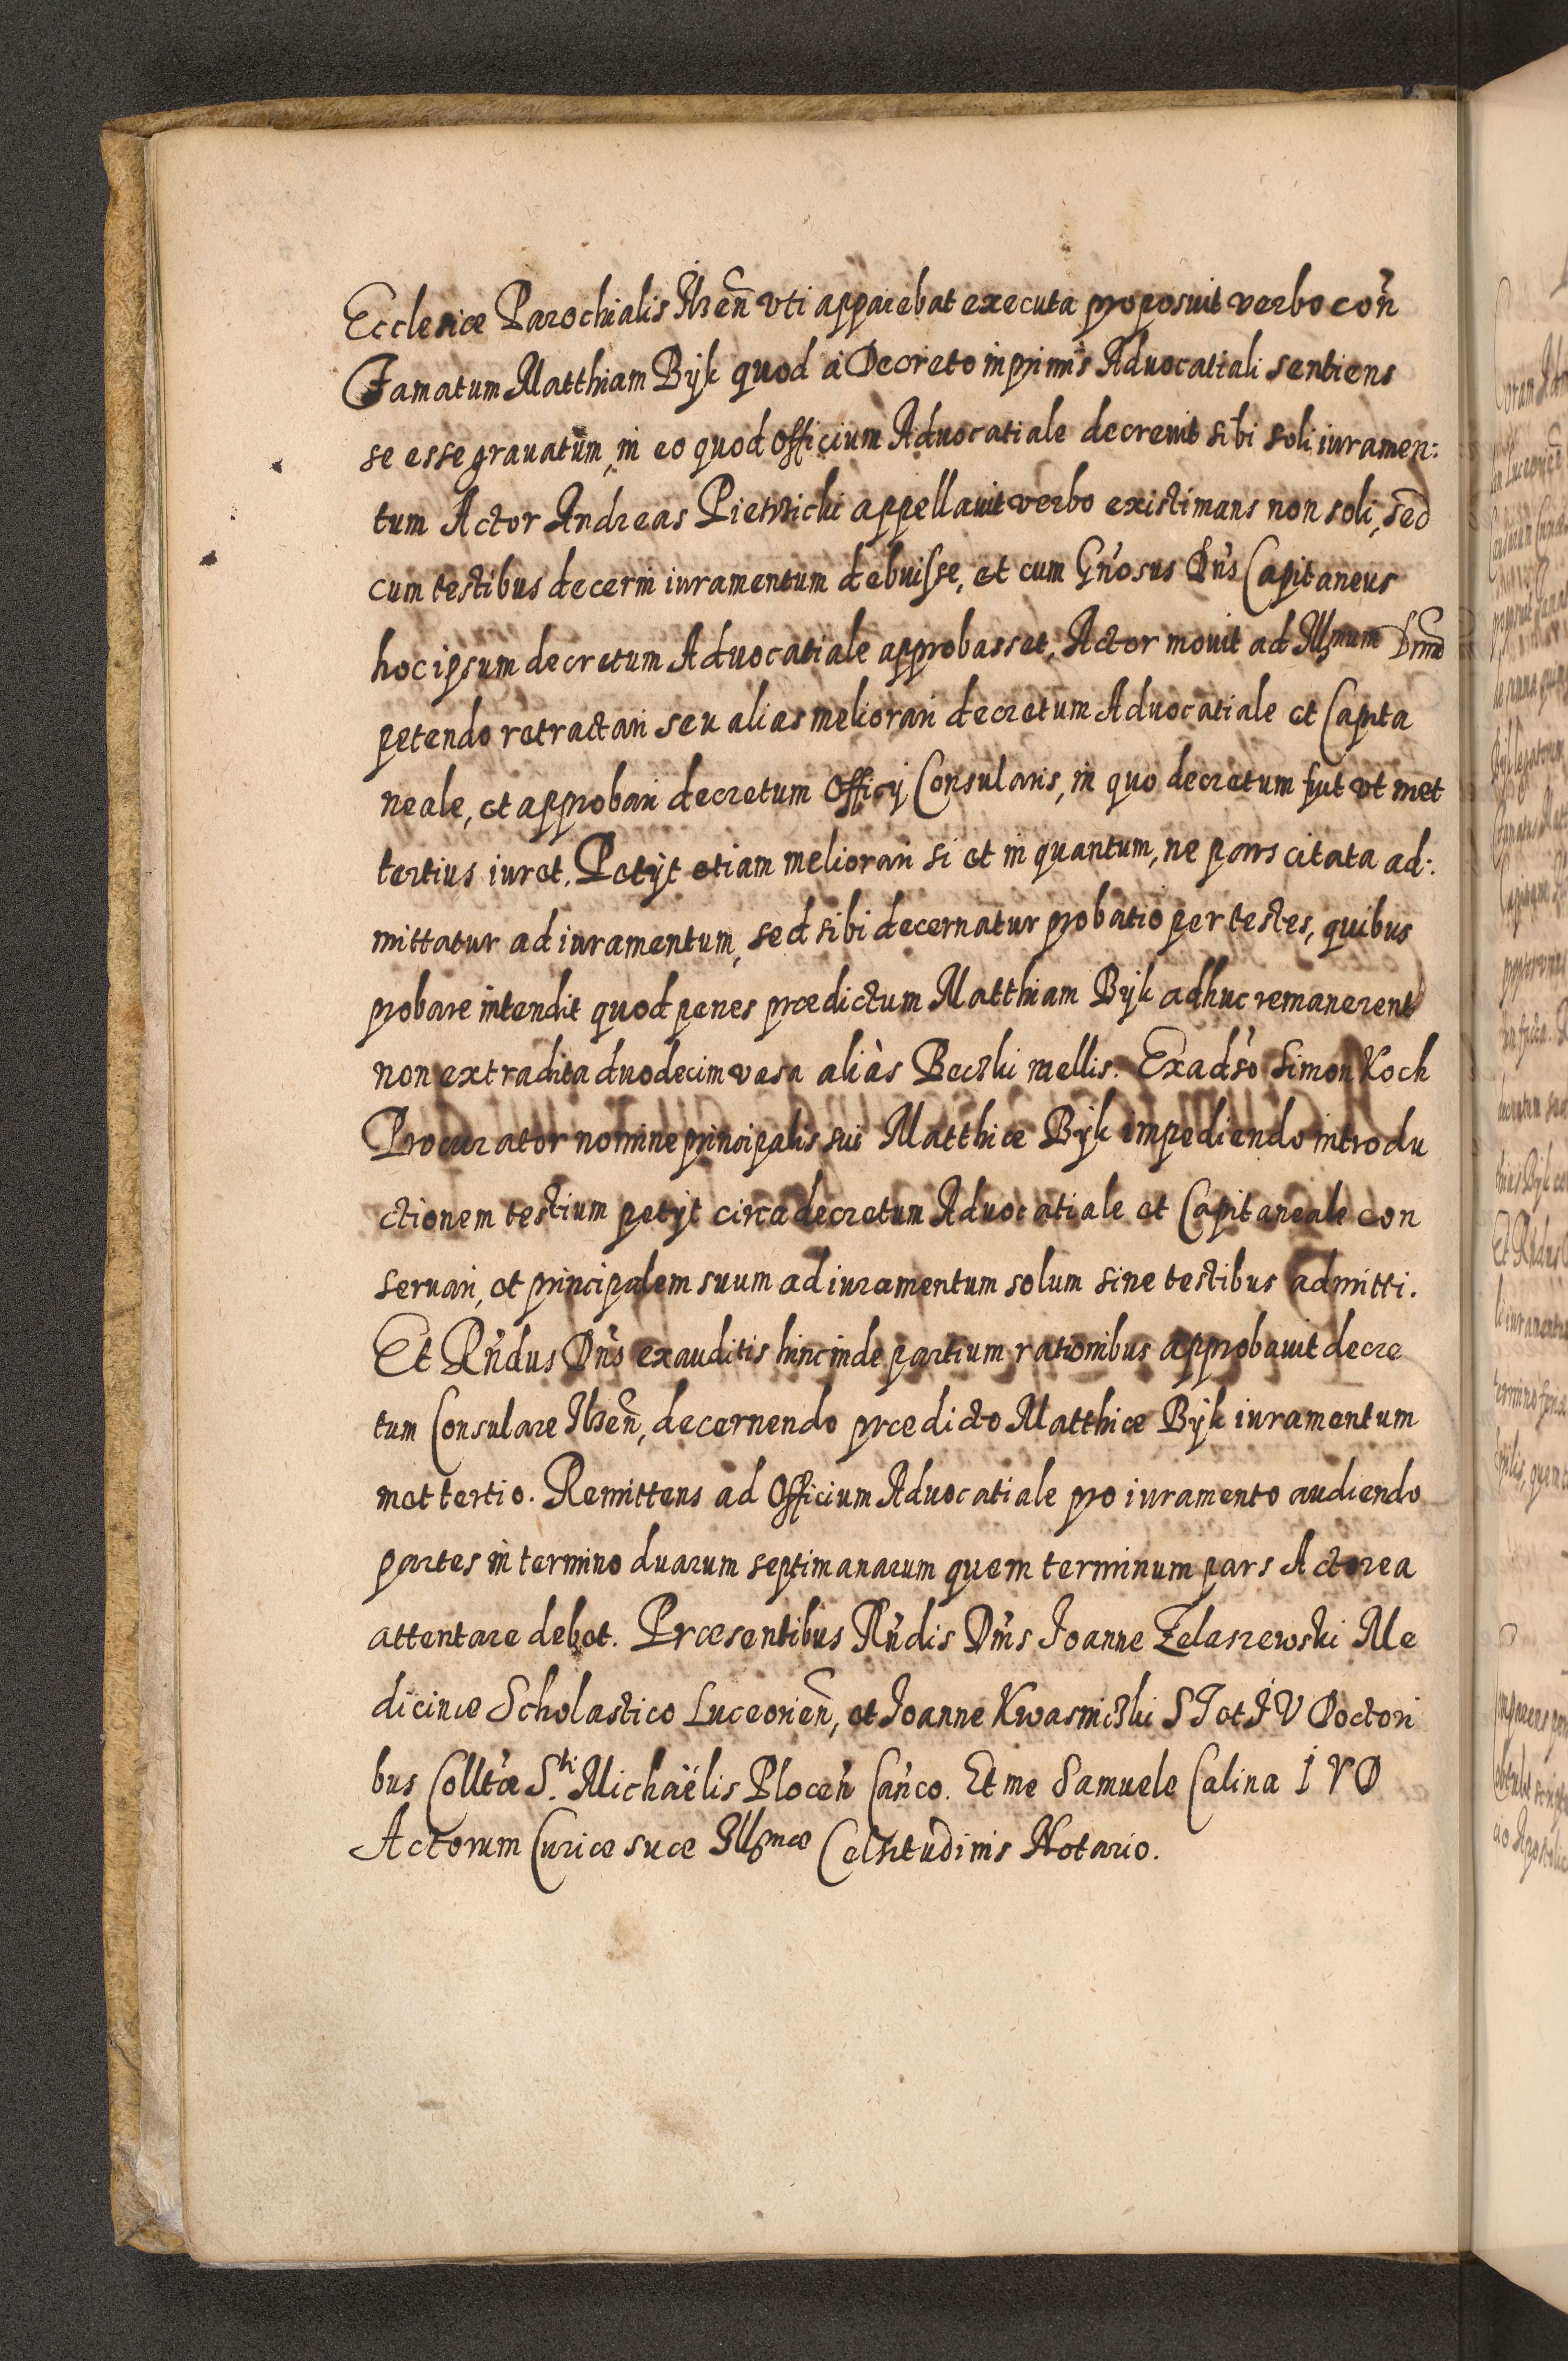 Ecclesiæ Parochialis Ilzeñ vti apparebat executa proposuit verbo coñ
Famatum Matthiam Byk quod à Decreto inprimis Aduocatiali sentiens
se esse grauatum, in eo quod Officium Aduocatiale decreuit sibi soli iuramen:
tum Actor Andreas appellauit verbo existimans non soli, sed
cum testibus decerni iuramentum debuisse, et cum Gñosus Dñs Capitaneus
hoc ipsum decretum Aduocatiale approbasset, Actor mouit ad Illmum Dnm
petendo retractari seu alias meliorari decretum Aduocatiale et Capita
neale, et approbari decretum Officÿ Consularis, in quo decretum fuit vt met
tertius iuret. Petÿt etiam meliorari si et in quantum, ne pars citata ad:
mittatur ad iuramentum, sed sibi decernatur probatio per testes, quibus
probare intendit quod penes prædictum Matthiam Byk adhuc remanerent
non extradita duodecim vasa aliàs Beczki mellis. Exadso Simon Koch
Procurator nomine principalis sui Matthiæ Byk impediendo introdu
ctionem testium petÿt circa decretum Aduocatiale et Capitaneale con
seruari, et principalem suum ad iuramentum solum sine testibus admitti.
Et Rñdus Dñs exauditis hincinde partium rationibus approbauit decre
tum Consulare Ilzeñ, decernendo prædicto Matthiæ Byk iuramentum
met tertio. Remittens ad Officium Aduocatiale pro iuramento audiendo
partes in termino duarum septimanarum quem terminum pars Actorea
attentare debet. Præsentibus Rñdis Dñis Joanne Zelaszewski Me
dicinæ Scholastico Luceorieñ, et Joanne Kwasniczki S T et I V Doctori
bus Colltæ Sti Michaëlis Ploceñ Cañco. Et me Samuele Calina I V D
Actorum Curiæ suæ Illmæ Celsitudinis Notario.